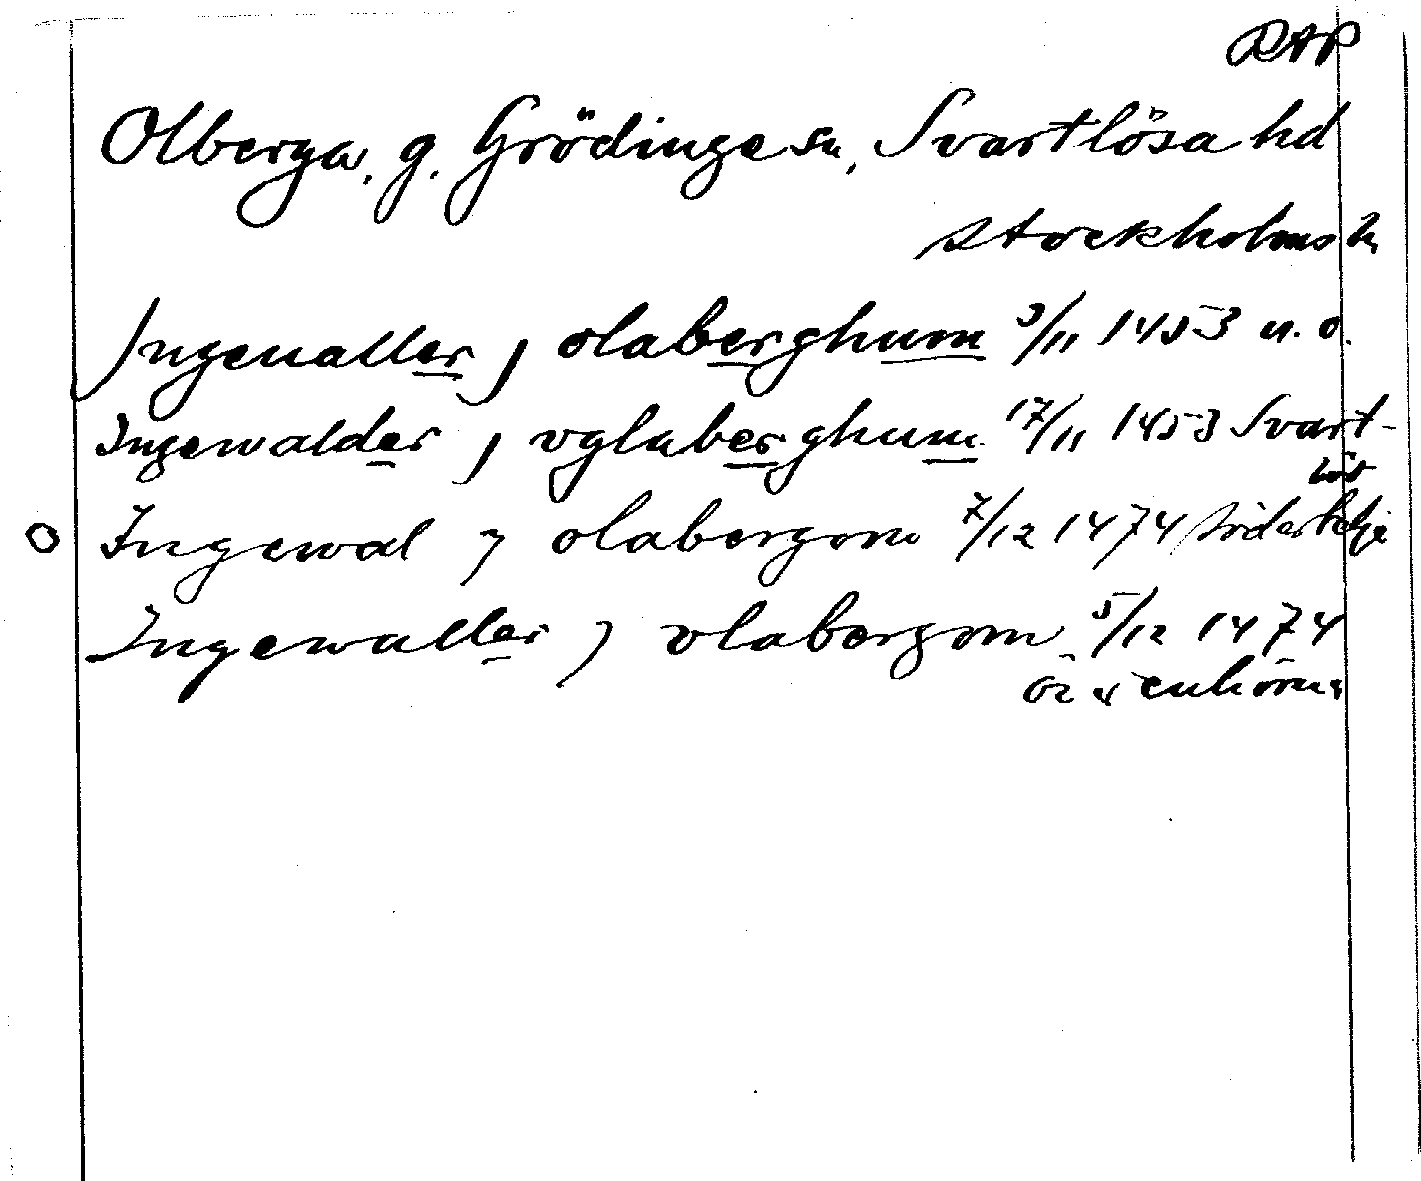 RAP
Olberga, g. Grödinge sn, Svartlösa hd
Stockholms l.
Jngeualler j olaberghum 3/11 1453 u. o.
Ingewalder j vglaberghum 17/11 1453 Svart-
lös
Ingewal j olabergom 7/12 1474 Södertelje
Ingewaller j olabergom 5/12 1474